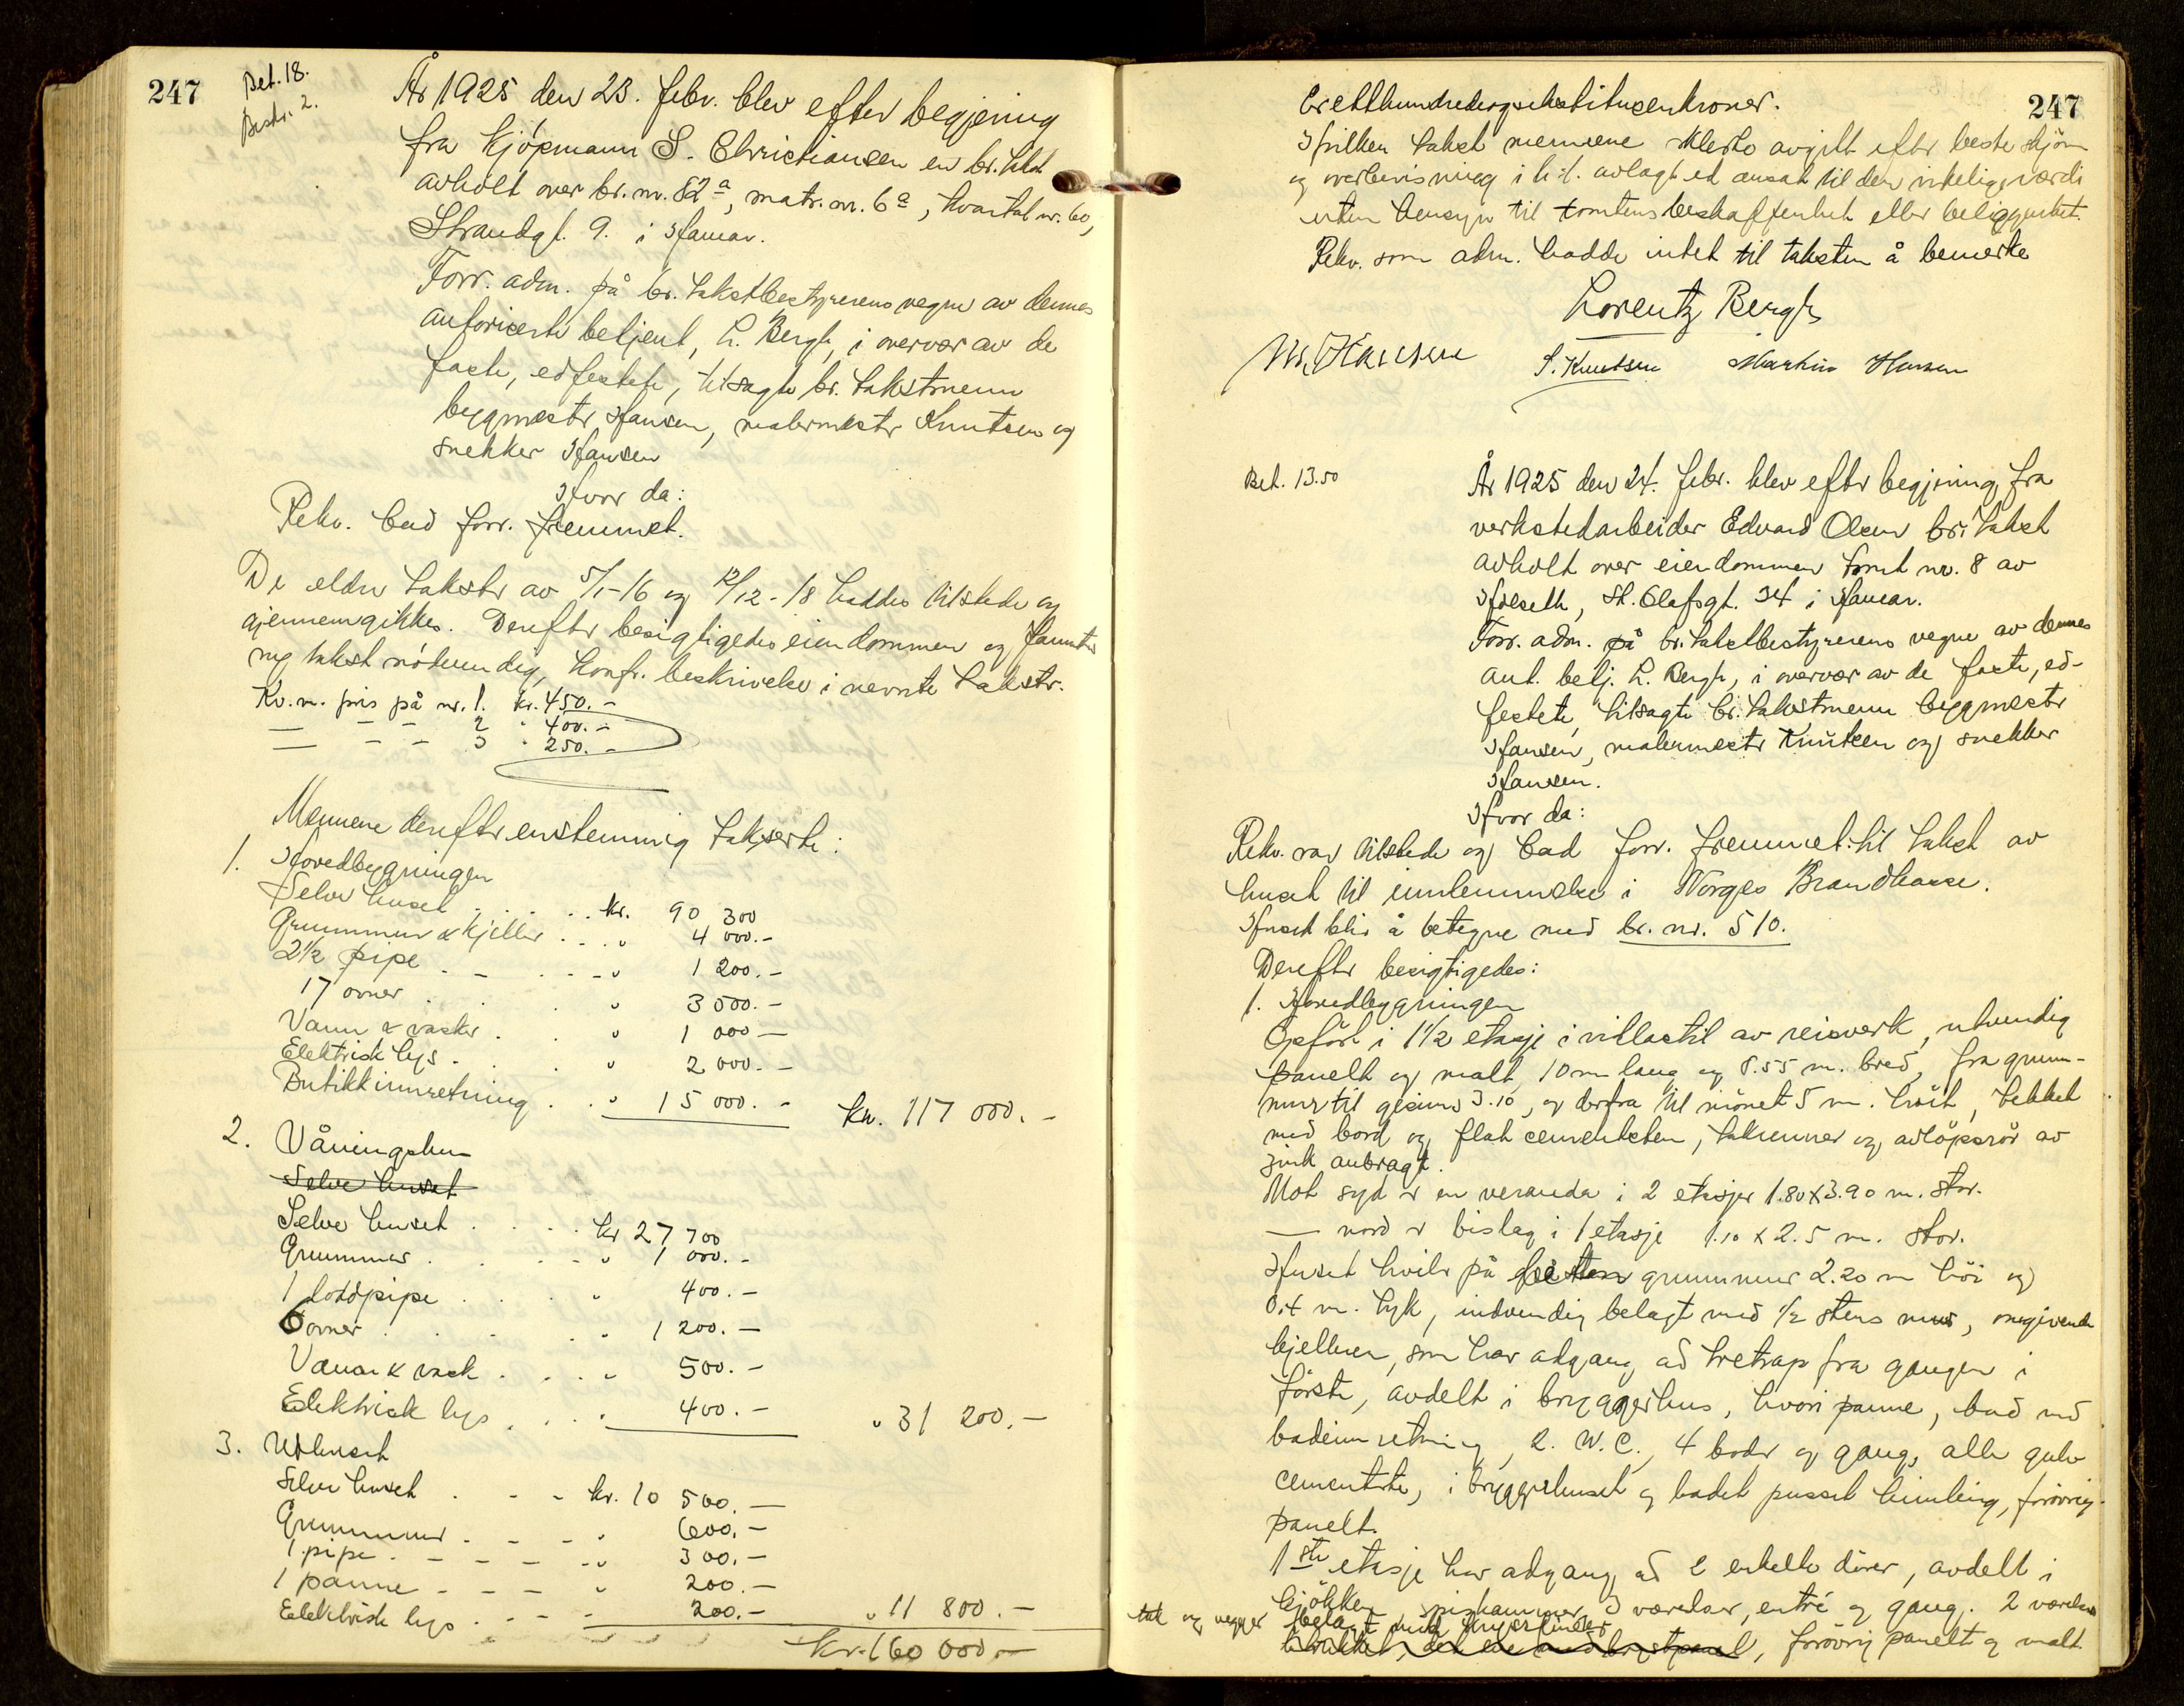 247
Bet. 18.
Bestr. 2.
År 1925 den 23. febr. blev efter begjering
fra kjøpmann S. Christiansen en br. takst
avholt over br. nr. 82ª, matr. nr. 6ª, kvartal nr. 60,
Strandgt. 9. i Hamar.
Forr. adm. på br. takstbestyrerens vegne av dennes
autoriserte betjent, L. Bergh, i overvær av de
faste, edfestete, tilsagte br. takstmenn
bygmestr Hansen, malermestr Knutsen og
snekker Hansen
Hvor da:
Rekv. bad forr. fremmet.
De eldre takstr av 5/1-16 og 12/12-18 haddes tilstede og
gjennemgikkes. Dereftr besigtigedes eiendommen og fanntes
ny takst nødvendig, konfr. beskrivelse i nevnte takstr.
Kv. m. pris på nr. 1. kr. 450.-
— — - 2 " 400.-
— — - 3 " 250.-
Mennene dereftr enstemmig takserte:
1. Hovedbygningen
Selve huset . . . . . kr. 90 300
Grunnmur & kjeller . . . " 4 000.-
2½ pipe . - . . . - " 1 200.-
17 ovner . . . " 3 500.-
Vann & vasker . . . " 1 000 —
Elektrisk lys . . . " 2 000.-
Butikkinnretning . . " 15 000.- kr. 117 000.-
2. Våningshus
Selve huset
Selve huset . . . . kr 27 700
Grunnmur . . . . - " 1 000.-
1 loddpipe . . . " 400.-
6 ovner . . . . " 1 200.—
Vann & vask . . . . " 500.-
Elektrisk lys . . . " 400.- " 31 200.-
3. Uthuset
Selve huset . - - kr. 10 500.—
Grunnmur . - - - " 600.-
1 pipe . - - - - " 300.-
1 panne - - - " 200.-
Elektrisk lys . - - - 200.- " 11 800.-
kr. 160 000.—
247
Eretthundredeogsekstitusenkroner.
Hvilken takst mennene erklerte avgitt efter beste skjøn
og overbevisning i h.t. avlagt ed ansatt til den virkelige værdi
uten hensyn til tomtens beskaffenhet eller beliggenhet.
Rekv. som adm. hadde intet til taksten å bemerke
Lorentz Bergh
M. Hansen S. Knutsen Martin Hansen
Bet. 13.50
År 1925 den 24. febr. blev eftr begjering fra
verkstedarbeider Edvard Olsen br. takst
avholt over eiendommen tomt nr. 8 av
Holseth, St. Olafsgt. 34 i Hamar.
Forr. adm. på br. takstbestyrerens vegne av dennes
aut. betj. L. Bergh, i overvær av de faste, ed-
festete, tilsagte br. takstmenn byggmestr
Hansen, malermestr Knutsen og snekker
Hansen.
Hvor da:
Rekv. var tilstede og bad forr. fremmet til takst av
huset til innlemmelse i Norges Brandkasse.
Huset blir å betegne med br. nr. 510.
Dereftr besigtigedes:
1. Hovedbygningen
Opført i 1½ etasje i villastil av reisverk, utvendig
panelt og malt, 10 m lang og 8.55 m. bred, fra grunn-
mur til gesims 3.10, og derfra til mønet 5 m. høit, tekket
med bord og flat cementsten, takrenner og avløpsrør av
zink anbragt.
Mot syd er en veranda i 2 etasjer 1.80 X 3.90 m. stor.
— nord er bislag i 1 etasje 1.10 X 2.5 m. stor.
Huset hviler på grunnmur 2.20 m høi og
0.4 m. tyk, indvendig belagt med ½ stens mur, omgivende
kjelleren, som har adgang ad tretrap fra gangen i
første, avdelt i bryggerhus, hvori panne, bad med
badeinnretning, 2. W.C., 4 boder og gang, alle gulv
cementerte, i bryggerhuset og badet pusset himling, forøvrig
panelt.
1ste etasje har adgang ad 2 enkelte dører, avdelt i
kjøkken spiskammer, 3 værelser, entré og gang. 2 værelser
tak og vegger belagt med
, forøvrig panelt og malt